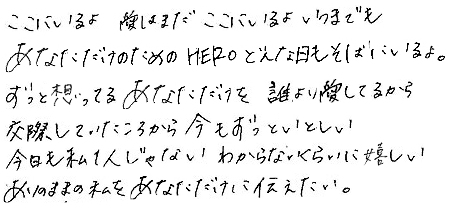 ここにいるよ 愛はまだ ここにいるよ いつまでも
あなただけのための HERO どんな日もそばにいるよ。
ずっと想ってる あなただけを 誰より愛してるから
交際していたころから 今もずっといとしい
今日も私1人じゃない わからないくらいに嬉しい
ありのままの私をあなただけに伝えたい。